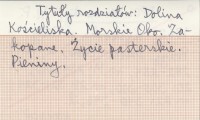 Tytuły rozdziałów: Dolina
Kościeliska. Morskie Oko. Za-
kopane. Życie pasterskie.
Pieniny.